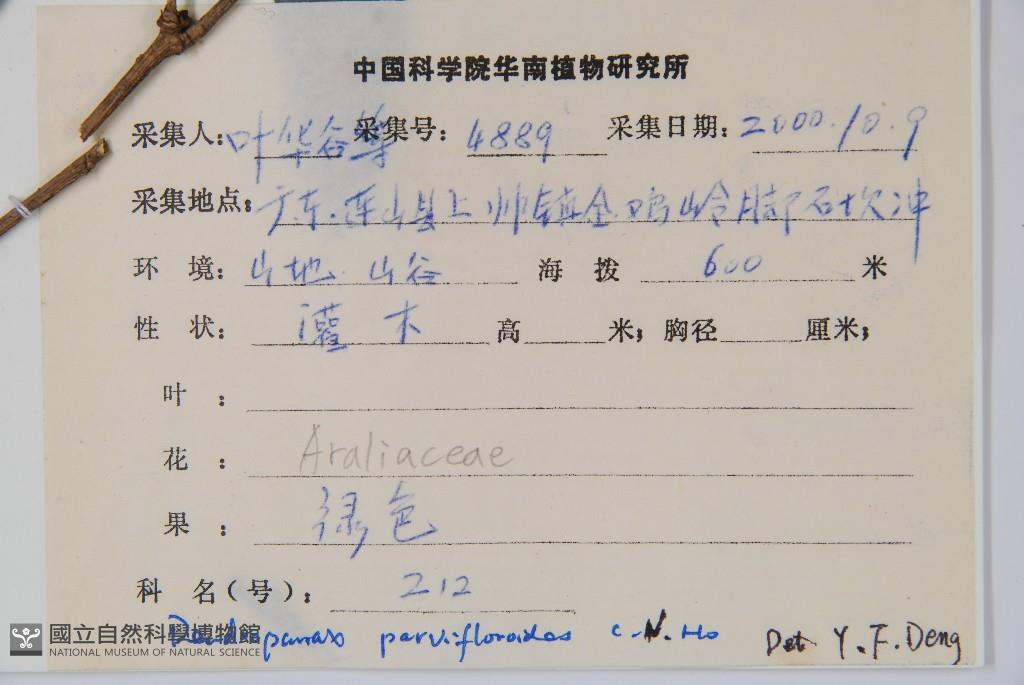 中国科学院华南植物研究所
采集人:叶华谷等 采集号: 4889 采集日期: 2000.10.9
采集地点: 广东.连山县上帅镇金鸡岭脚石坎冲
环 境: 山地. 山谷 海 拨 600 米
性 状: 灌木 高 米; 胸径 厘米;
叶 :
花 : Araliaceae
果 : 绿色
科 名(号): 212
Dendropanax parvifloroides C.N.Ho Det Y.F.Deng
國立自然科學博物館
NATIONAL MUSEUM OF NATURAL SCIENCE